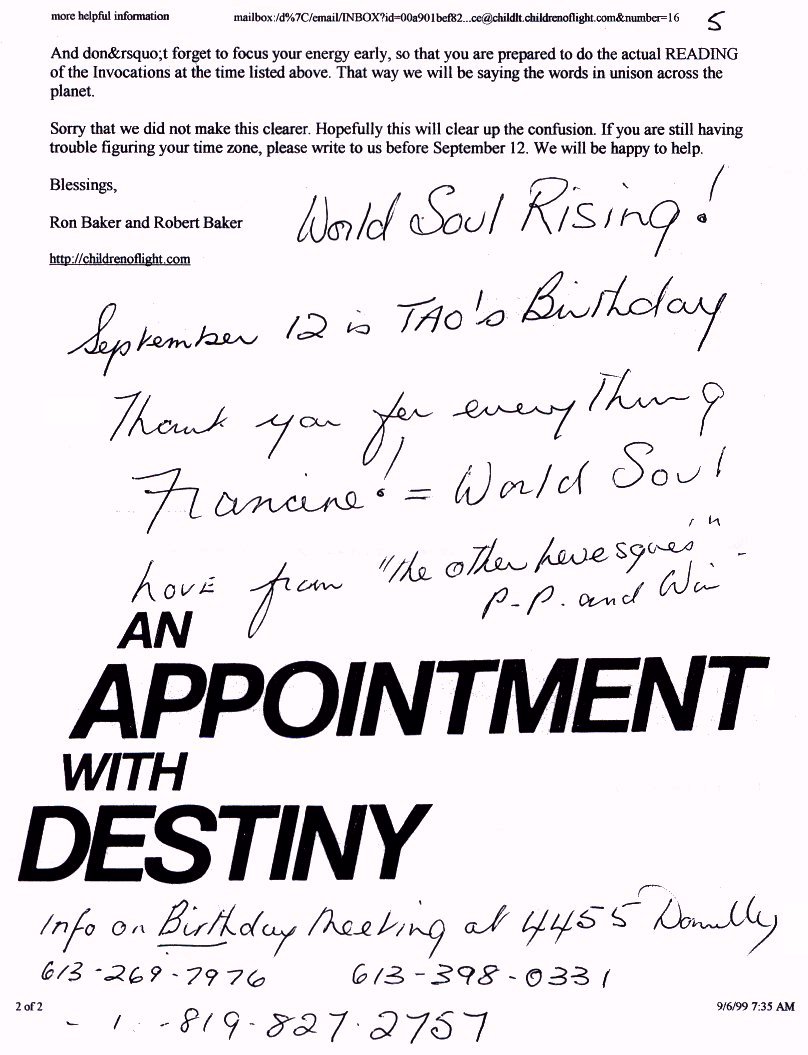 more helpful information mailbox:/d%7C/email/INBOX?id=00a901bef82...ce@childlt.childrenoflight.com&number=16 5
And don&rsquo;t forget to focus your energy early, so that you are prepared to do the actual READING
of the Invocations at the time listed above. That way we will be saying the words in unison across the
planet.
Sorry that we did not make this clearer. Hopefully this will clear up the confusion. If you are still having
trouble figuring your time zone, please write to us before September 12. We will be happy to help.
Blessings,
Ron Baker and Robert Baker
http://childrenoflight.com
World Soul Rising!
September 12 is TAO's Birthday
Thank you for everything
Francine! = World Soul
Love from "the other Levesques"
P-P. and Win
AN
APPOINTMENT
WITH
DESTINY
Info on Birthday Meeting at 4455
613-269-7976 613-398-0331
2 of 2 9/6/99 7:35 AM
- 1 - 819-827-2757